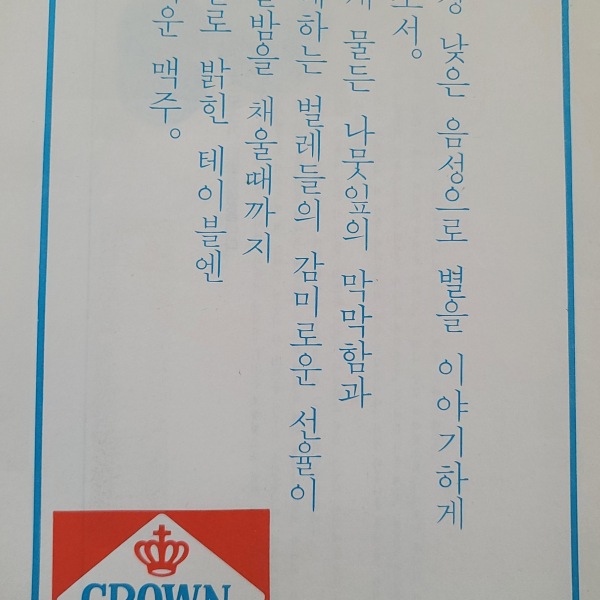 낮은 음성으로 별을 이야기하게
물든 나뭇잎의 막막함과
하는 벌레들의 감미로운 선율이
밤을 채울때까지
밝힌 테이블엔
맥주。
CROWN